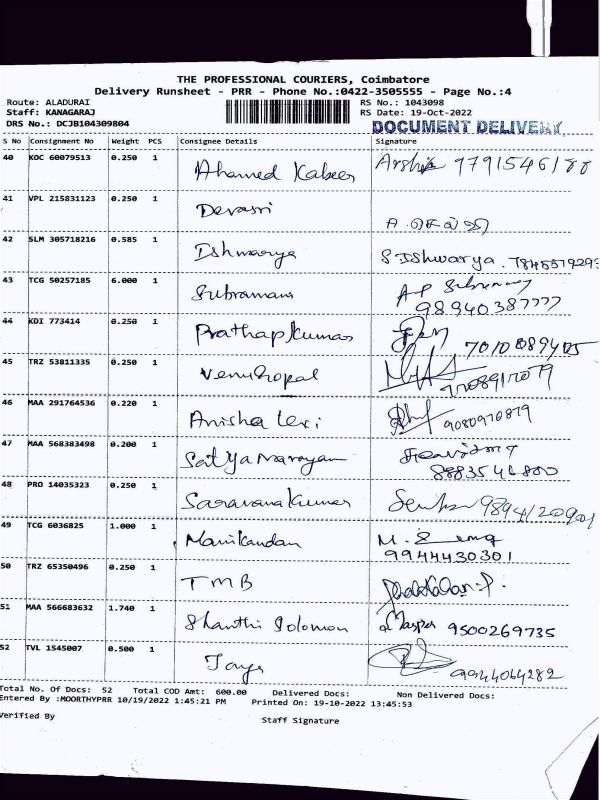 THE PROFESSIONAL COURIERS, Coimbatore
Delivery Runsheet - PRR - Phone No.:0422-3505555 - Page No.:4
Route: ALADURAI
Staff: KANAGARAJ
DRS No.: DCJB104309804
RS No.: 1043098
RS Date: 19-Oct-2022
DOCUMENT DELIVERY
S No Consignment No Weight PCS Consignee Details Signature
40 KOC 60079513 0.250 1 Ahamed Kabeer
41 VPL 215831123 0.250 1
42 SLM 305718216 0.585 1 Ishwarya S Ishwarya
43 TCG 50257185 6.000 1 Subramani
98940387777
44 KDI 773414 0.250 1 Prathap Kumar
45 TRZ 53811335 0.250 1 Venu Gopal
46 MAA 291764536 0.220 1 Anisha
9080970879
47 MAA 568383498 0.200 1 Satya Narayan
48 PRO 14035323 0.250 1 Saravana Kumar
49 TCG 6036825 1.000 1 Manikandan
9944430301
50 TRZ 65350496 0.250 1 TMB
51 MAA 566683632 1.740 1 Shanthi Solomon 9500269735
52 TVL 1545007 0.500 1
9944064282
Total No. Of Docs: 52 Total COD Amt: 600.00 Delivered Docs: Non Delivered Docs:
Entered By :MOORTHYPRR 10/19/2022 1:45:21 PM Printed On: 19-10-2022 13:45:53
Verified By Staff Signature